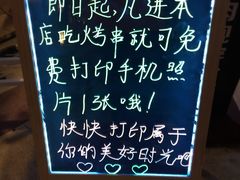 即日起,凡进本
店吃烤串就可免
费打印手机照
片1张哦!
快快打印属于
你的美好时光吧